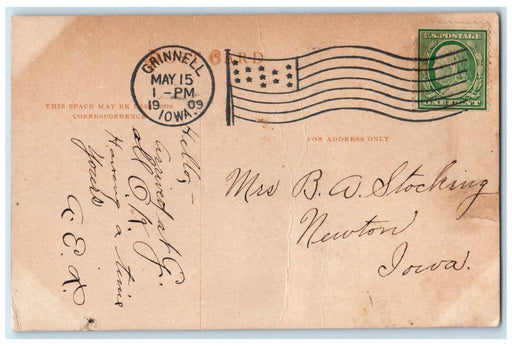 POST CARD
GRINNELL
MAY 15
1-PM
1909
IOWA.
U.S. POSTAGE
ONE CENT
THIS SPACE MAY BE USED FOR
CORRESPONDENCE
FOR ADDRESS ONLY
Hello,-
Arrived at G.
all O.K.
Having a time
Yours
Mrs B. A. Stocking
Newton
Iowa.